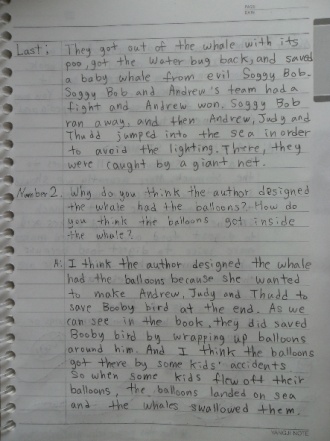 Last: They got out of the whale with its
poo, got the water bug back, and saved
a baby whale from evil Soggy Bob.
Soggy Bob and Andrew's team had a
fight and Andrew won, Soggy Bob
ran away, and then Andrew, Judy and
Thudd jumped into the sea in order
to avoid the lighting. There, they
were caught by a giant net.
Number 2. Why do you think the author designed
the whale had the balloons? How do
you think the balloons got inside
the whale?
A: I think the author designed the whale
had the balloons because she wanted
to make Andrew, Judy and Thudd to
save Booby bird at the end. As we
can see in the book, they did saved
Booby bird by wrapping up balloons
around him. And I think the balloons
got there by some kids' accidents.
So when some kids flew off their
balloons, the balloons landed on sea
and the whales swallowed them.